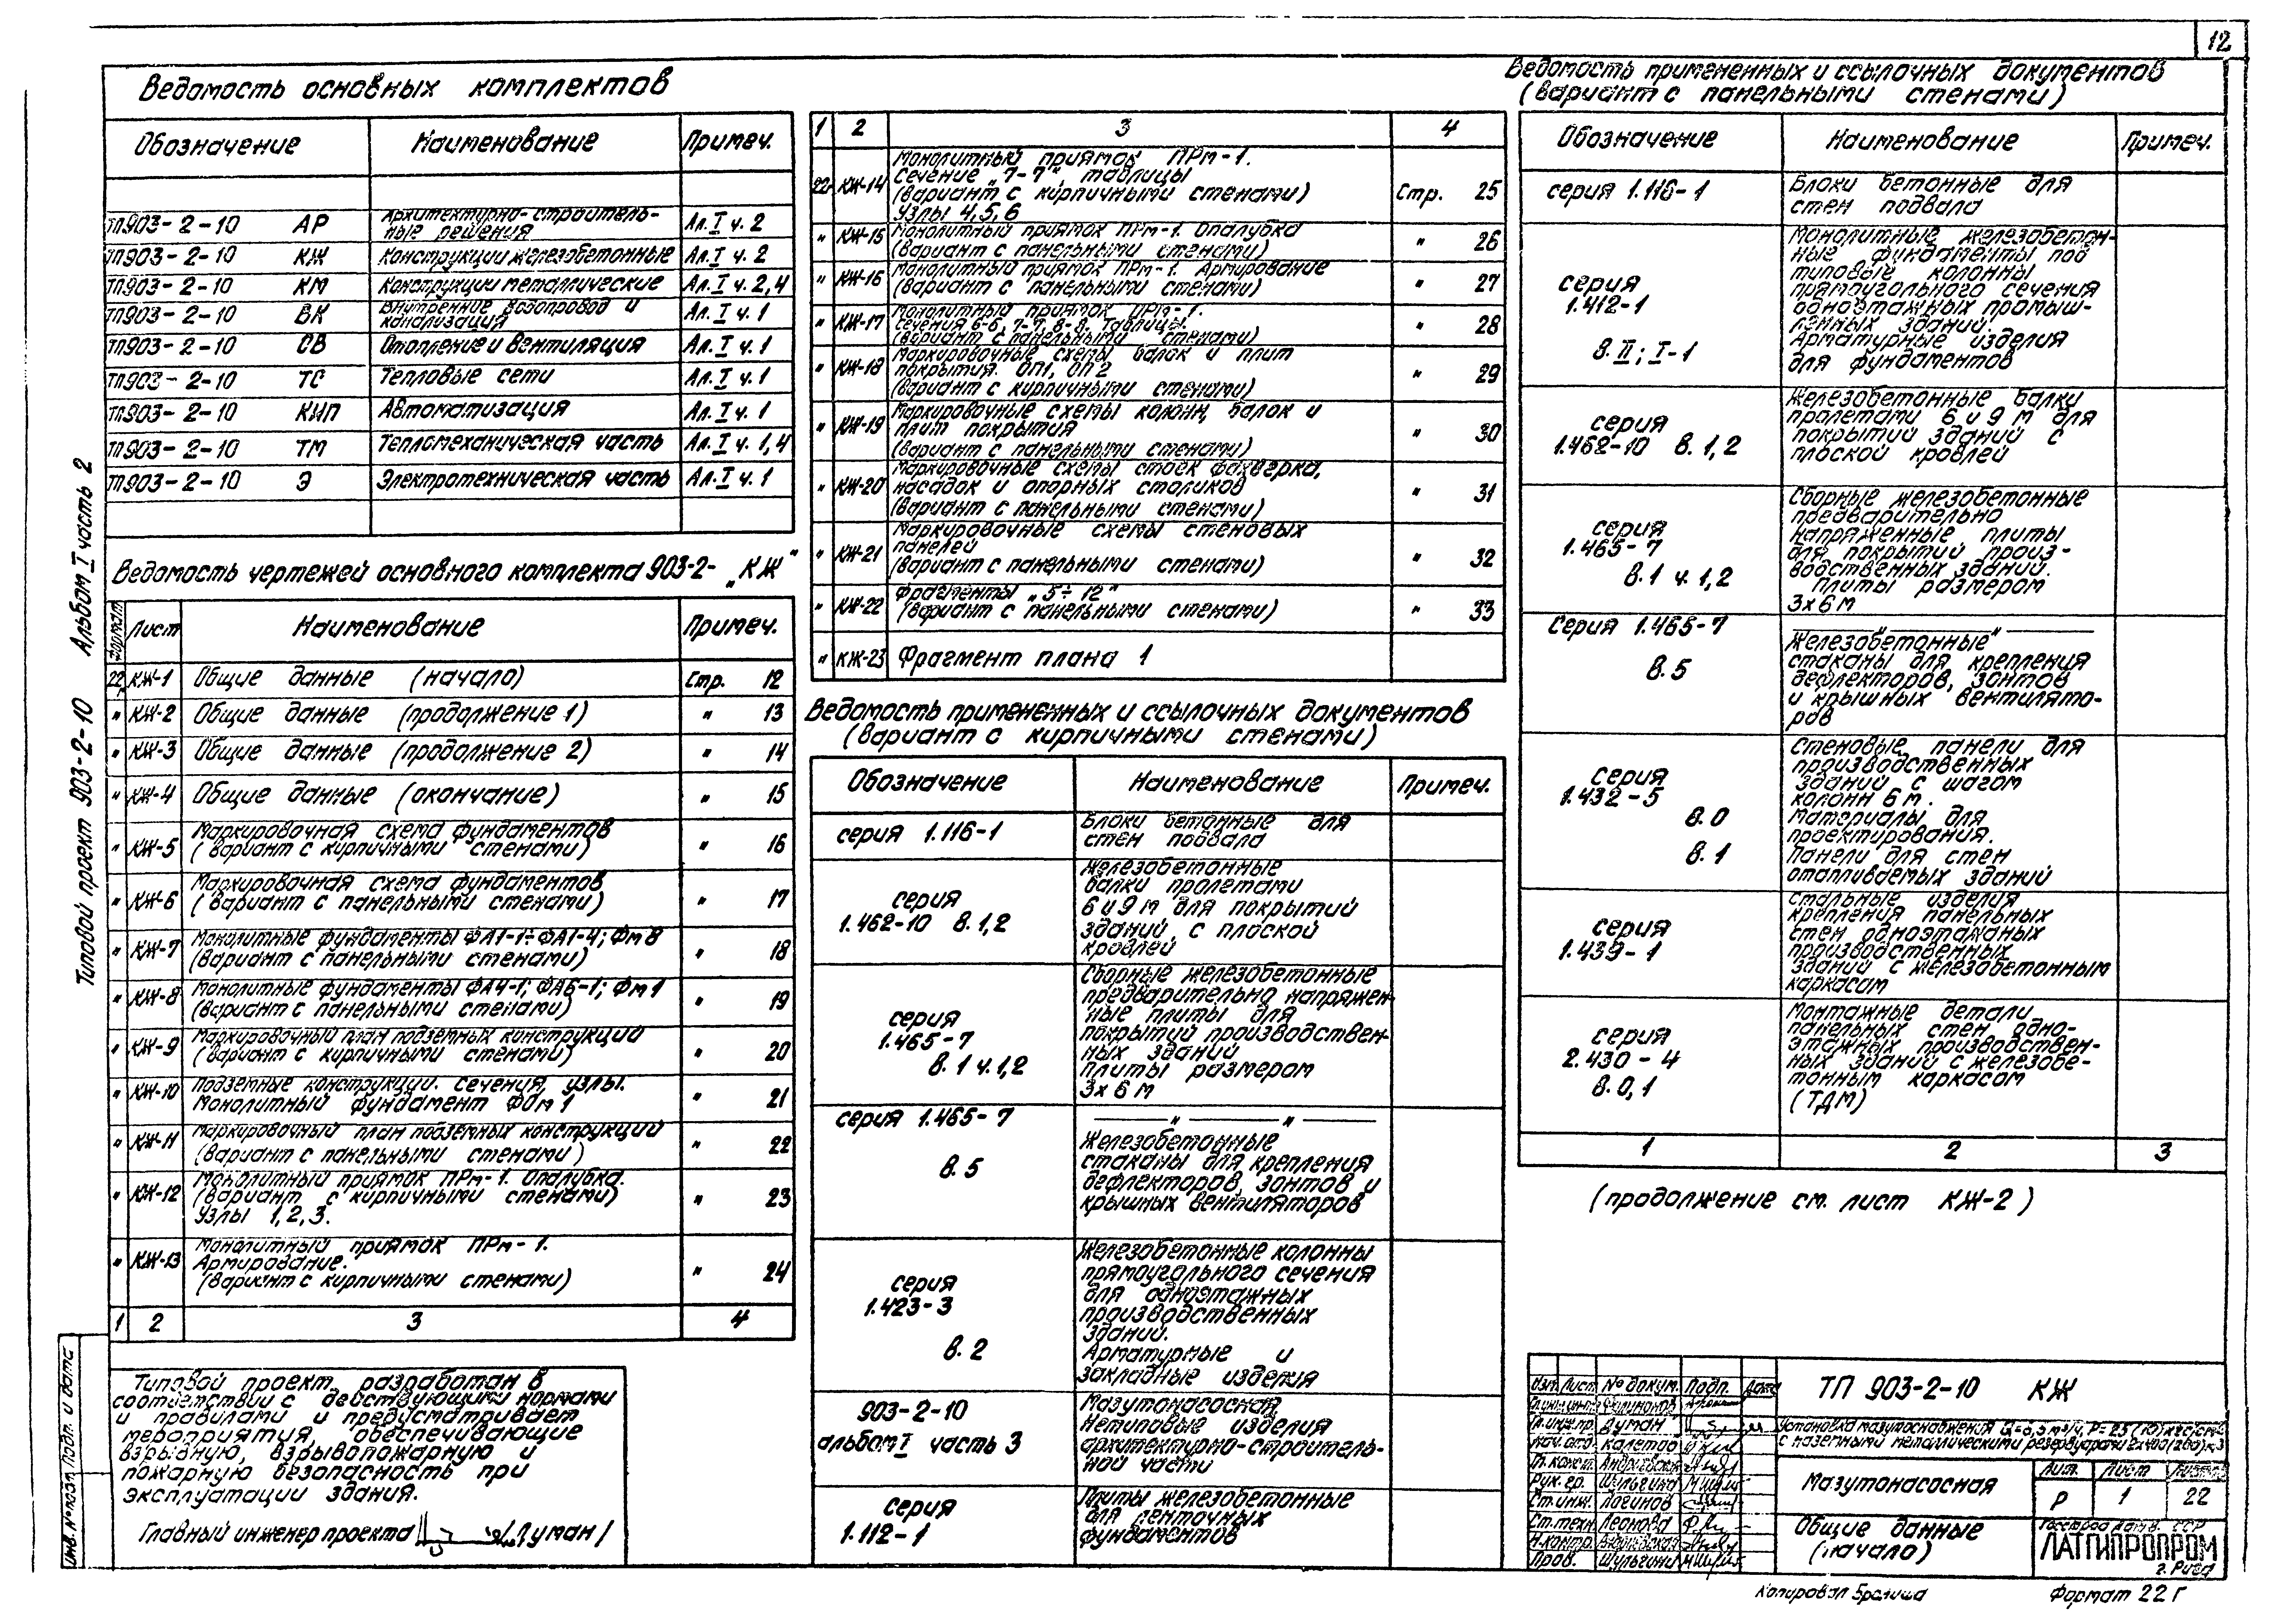 12
Ведомость основных комплектов
Обозначение Наименование Примеч.
ТП903-2-10 АР Архитектурно-строитель-
ные решения Ал. I ч. 2
ТП903-2-10 КЖ Конструкции железобетонные Ал. I ч. 2
ТП903-2-10 КМ Конструкции металлические Ал. I ч. 2,4
ТП903-2-10 ВК Внутренние водопровод и
канализация Ал. I ч. 1
ТП903-2-10 ОВ Отопление и вентиляция Ал. I ч. 1
ТП903-2-10 ТС Тепловые сети Ал. I ч. 1
ТП903-2-10 КИП Автоматизация Ал. I ч. 1
ТП903-2-10 ТМ Тепломеханическая часть Ал. I ч. 1,4
ТП903-2-10 Э Электротехническая часть Ал. I ч. 1
Ведомость чертежей основного комплекта 903-2- „КЖ"
Формат Лист Наименование Примеч.
22г КЖ-1 Общие данные (начало) Стр. 12
" КЖ-2 Общие данные (продолжение 1) " 13
" КЖ-3 Общие данные (продолжение 2) " 14
" КЖ-4 Общие данные (окончание) " 15
" КЖ-5 Маркировочная схема фундаментов
(вариант с кирпичными стенами) " 16
" КЖ-6 Маркировочная схема фундаментов
(вариант с панельными стенами) " 17
" КЖ-7 Монолитные фундаменты ФА1-1÷ФА1-4; Фм8
(вариант с панельными стенами) " 18
" КЖ-8 Монолитные фундаменты ФА4-1; ФА6-1; Фм1
(вариант с панельными стенами) " 19
" КЖ-9 Маркировочный план подземных конструкций
(вариант с кирпичными стенами) " 20
" КЖ-10 Подземные конструкции. Сечения, узлы.
Монолитный фундамент ФОм1 " 21
" КЖ-11 Маркировочный план подземных конструкций
(вариант с панельными стенами) " 22
" КЖ-12 Монолитный приямок ПРм-1. Опалубка.
(вариант с кирпичными стенами)
Узлы 1,2,3. " 23
" КЖ-13 Монолитный приямок ПРм-1.
Армирование.
(вариант с кирпичными стенами) " 24
1 2 3 4
Типовой проект разработан в
соответствии с действующими нормами
и правилами и предусматривает
мероприятия, обеспечивающие
взрывную, взрывопожарную и
пожарную безопасность при
эксплуатации здания.
Главный инженер проекта /Думан/
1 2 3 4
22г КЖ-14 Монолитный приямок ПРм-1.
Сечение „7-7", таблицы
(вариант с кирпичными стенами)
Узлы 4,5,6 Стр. 25
" КЖ-15 Монолитный приямок ПРм-1. Опалубка
(вариант с панельными стенами) " 26
" КЖ-16 Монолитный приямок ПРм-1. Армирование
(вариант с панельными стенами) " 27
" КЖ-17 Монолитный приямок ПРм-1.
Сечения 6-6, 7-7, 8-8. Таблицы.
(вариант с панельными стенами) " 28
" КЖ-18 Маркировочные схемы балок и плит
покрытия. ОП1, ОП2
(вариант с кирпичными стенами) " 29
" КЖ-19 Маркировочные схемы колонн, балок и
плит покрытия
(вариант с панельными стенами) " 30
" КЖ-20 Маркировочные схемы стоек фахверка,
насадок и опорных столиков
(вариант с панельными стенами) " 31
" КЖ-21 Маркировочные схемы стеновых
панелей
(вариант с панельными стенами) " 32
" КЖ-22 Фрагменты „5÷12"
(вариант с панельными стенами) " 33
" КЖ-23 Фрагмент плана 1
Ведомость примененных и ссылочных документов
(вариант с кирпичными стенами)
Обозначение Наименование Примеч.
серия 1.116-1 Блоки бетонные для
стен подвала
серия
1.462-10 в. 1,2 Железобетонные
балки пролетами
6 и 9 м для покрытий
зданий с плоской
кровлей
серия
1.465-7
в. 1 ч. 1,2 Сборные железобетонные
предварительно напряжен-
ные плиты для
покрытий производствен-
ных зданий
плиты размером
3х6 м
серия 1.465-7 — " — " —
в. 5 Железобетонные
стаканы для крепления
дефлекторов, зонтов и
крышных вентиляторов
серия
1.423-3
в. 2 Железобетонные колонны
прямоугольного сечения
для одноэтажных
производственных
зданий.
Арматурные и
закладные изделия
903-2-10
альбом I часть 3 Мазутонасосная
Нетиповые изделия
архитектурно-строитель-
ной части
серия
1.112-1 Плиты железобетонные
для ленточных
фундаментов
Ведомость примененных и ссылочных документов
(вариант с панельными стенами)
Обозначение Наименование Примеч.
серия 1.116-1 Блоки бетонные для
стен подвала
серия
1.412-1
в. II; I-1 Монолитные железобетон-
ные фундаменты под
типовые колонны
прямоугольного сечения
одноэтажных промыш-
ленных зданий.
Арматурные изделия
для фундаментов
серия
1.462-10 в. 1,2 Железобетонные балки
пролетами 6 и 9 м для
покрытий зданий с
плоской кровлей
серия
1.465-7
в. 1 ч. 1,2 Сборные железобетонные
предварительно
напряженные плиты
для покрытий произ-
водственных зданий.
Плиты размером
3х6 м
серия 1.465-7 — " —
в. 5 Железобетонные
стаканы для крепления
дефлекторов, зонтов
и крышных вентилято-
ров
серия
1.432-5
в. 0
в. 1 Стеновые панели для
производственных
зданий с шагом
колонн 6 м.
Материалы для
проектирования.
Панели для стен
отапливаемых зданий
серия
1.439-1 Стальные изделия
крепления панельных
стен одноэтажных
производственных
зданий с железобетонным
каркасом
серия
2.430-4
в. 0,1 Монтажные детали
панельных стен одно-
этажных производствен-
ных зданий с железобе-
тонным каркасом
(ТДМ)
1 2 3
(продолжение см. лист КЖ-2)
Изм. Лист № докум. Подп. Дата
Гл. инж. пр. Думан
Нач. отд.
Гл. конст.
Рук. гр. Шульгина
Ст. инж. Логинов
Ст. техн. Леонова
Н. контр.
Пров. Шульгина
ТП 903-2-10 КЖ
Установка мазутоснабжения
с наземными металлическими резервуарами
Мазутонасосная
Лит. Лист Листов
Р 1 22
Общие данные
(начало)
ЛАТГИПРОПРОМ
г. Рига
Копировал
Формат 22 Г
Типовой проект 903-2-10 Альбом I часть 2
Инв. № Подп. и дата